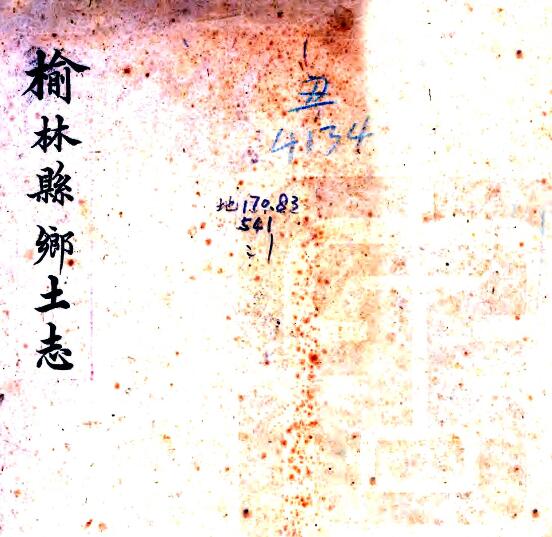 榆林縣鄉土志
丑
4134
地170.83
541
:1